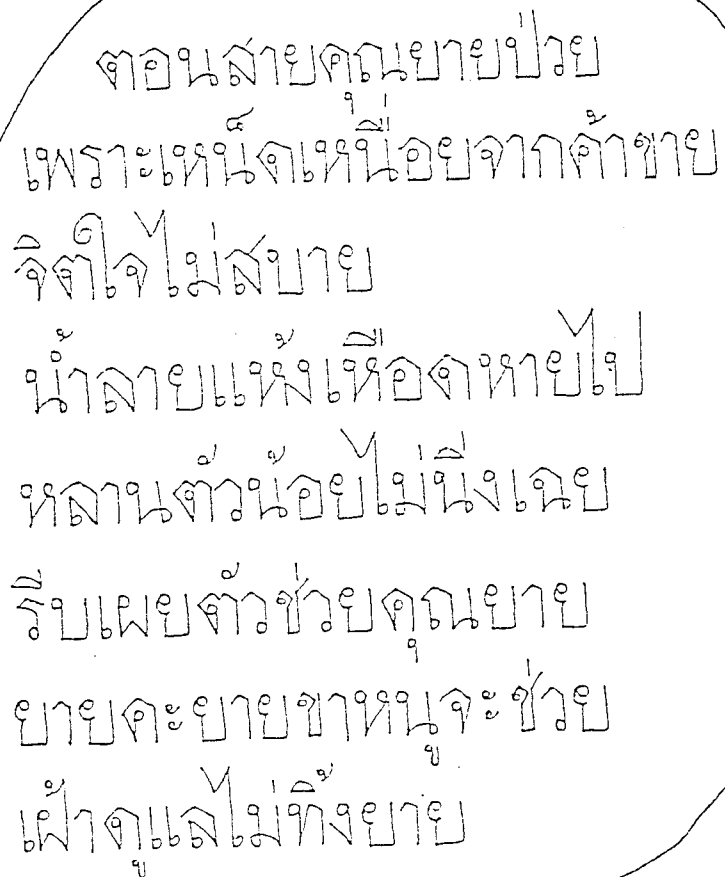 ตอนสายคุณยายป่วย
เพราะเหน็ดเหนื่อยจากค้าขาย
จิตใจไม่สบาย
น้ำลายแห้งเหือดหายไป
หลานตัวน้อยไม่นิ่งเฉย
รีบเผยตัวช่วยคุณยาย
ยายคะยายขาหนูจะช่วย
เฝ้าดูแลไม่ทิ้งยาย